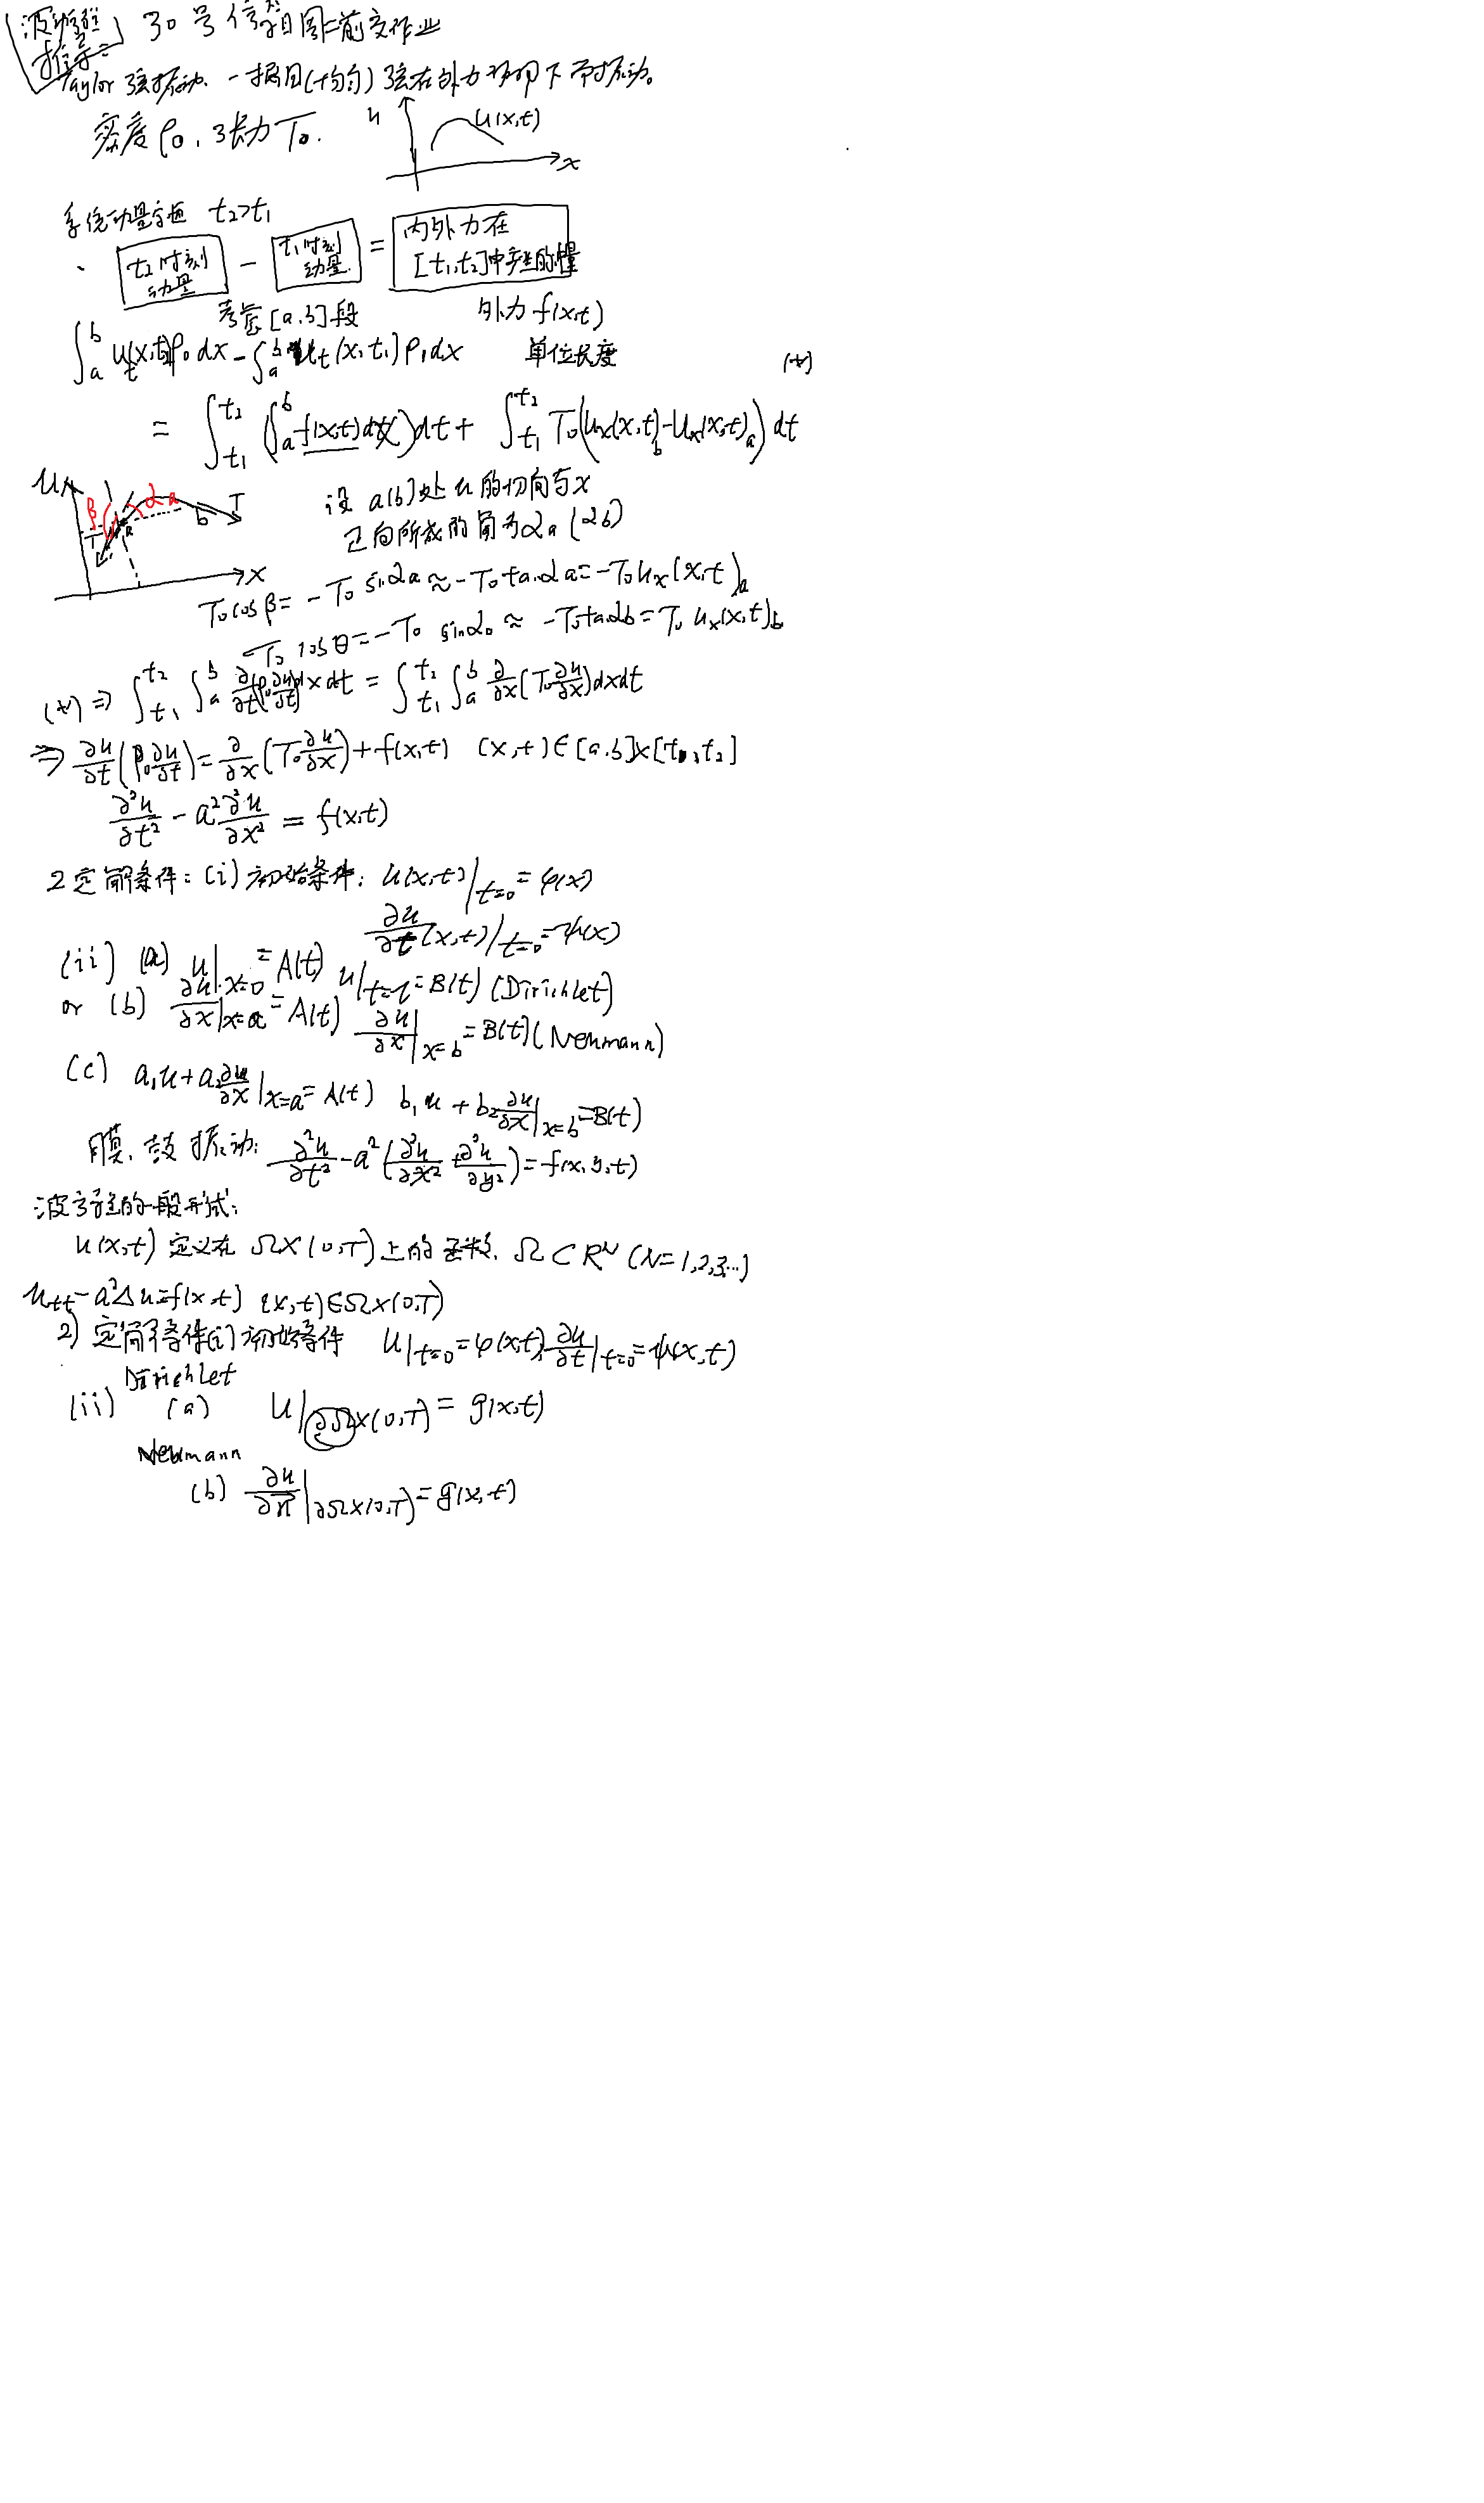 波动方程
推导
30号信箱周二前交作业
Taylor 弦振动. 一根(均匀)弦在外力作用下而振动。
密度ρ₀, 张力T₀.
u
u(x,t)
x
系统动量守恒 t₂>t₁
t₂时刻
动量
-
t₁时刻
动量
=
内外力在
[t₁,t₂]中产生的冲量
考虑[a.b]段 外力f(x,t)
∫ₐᵇ uₜ(x,t₂)ρ₀dx - ∫ₐᵇ uₜ(x,t₁)ρ₁dx 单位长度 (*)
= ∫_{t₁}^{t₂} (∫ₐᵇ f(x,t)dx)dt + ∫_{t₁}^{t₂} T₀(uₓ(x,t)_b - uₓ(x,t)_a) dt
u
β
α a
T
b
T
a
x
设a(b)处u的切向与x
正向所成的角为αa (αb)
T₀cosβ = -T₀ sinαa ≈ -T₀tanαa = -T₀uₓ(x,t)_a
-T₀ cosθ = -T₀ sinα₀ ≈ -T₀tanαb = T₀ uₓ(x,t)_b
(*) ⇒ ∫_{t₁}^{t₂} ∫ₐᵇ ∂/∂t(ρ₀∂u/∂t)dxdt = ∫_{t₁}^{t₂} ∫ₐᵇ ∂/∂x(T₀∂u/∂x)dxdt
⇒ ∂u/∂t(ρ₀∂u/∂t) = ∂/∂x(T₀∂u/∂x) + f(x,t) (x,t)∈[a.b]×[t₁,t₂]
∂²u/∂t² - a²∂²u/∂x² = f(x,t)
2 定解条件: (i) 初始条件: u(x,t)|t=0 = φ(x)
∂u/∂t(x,t)|t=0 = ψ(x)
(ii) (a) u|x=0 = A(t) u|t=l = B(t) (Dirichlet)
or (b) ∂u/∂x|x=a = A(t) ∂u/∂x|x=b = B(t) (Neumann)
(c) a₁u + a₂∂u/∂x|x=a = A(t) b₁u + b₂∂u/∂x|x=b = B(t)
膜、鼓振动: ∂²u/∂t² - a²(∂²u/∂x² + ∂²u/∂y²) = f(x,y,t)
波方程的一般形式:
u(x,t) 定义在 Ω×(0,T)上的函数. Ω⊂Rᴺ (N=1,2,3…)
uₜₜ - a²Δu = f(x,t) (x,t)∈Ω×(0,T)
2) 定解条件(i) 初始条件 u|t=0 = φ(x,t), ∂u/∂t|t=0 = ψ(x,t)
Dirichlet
(ii) (a) u|∂Ω×(0,T) = g(x,t)
Neumann
(b) ∂u/∂n|∂Ω×(0,T) = g(x,t)